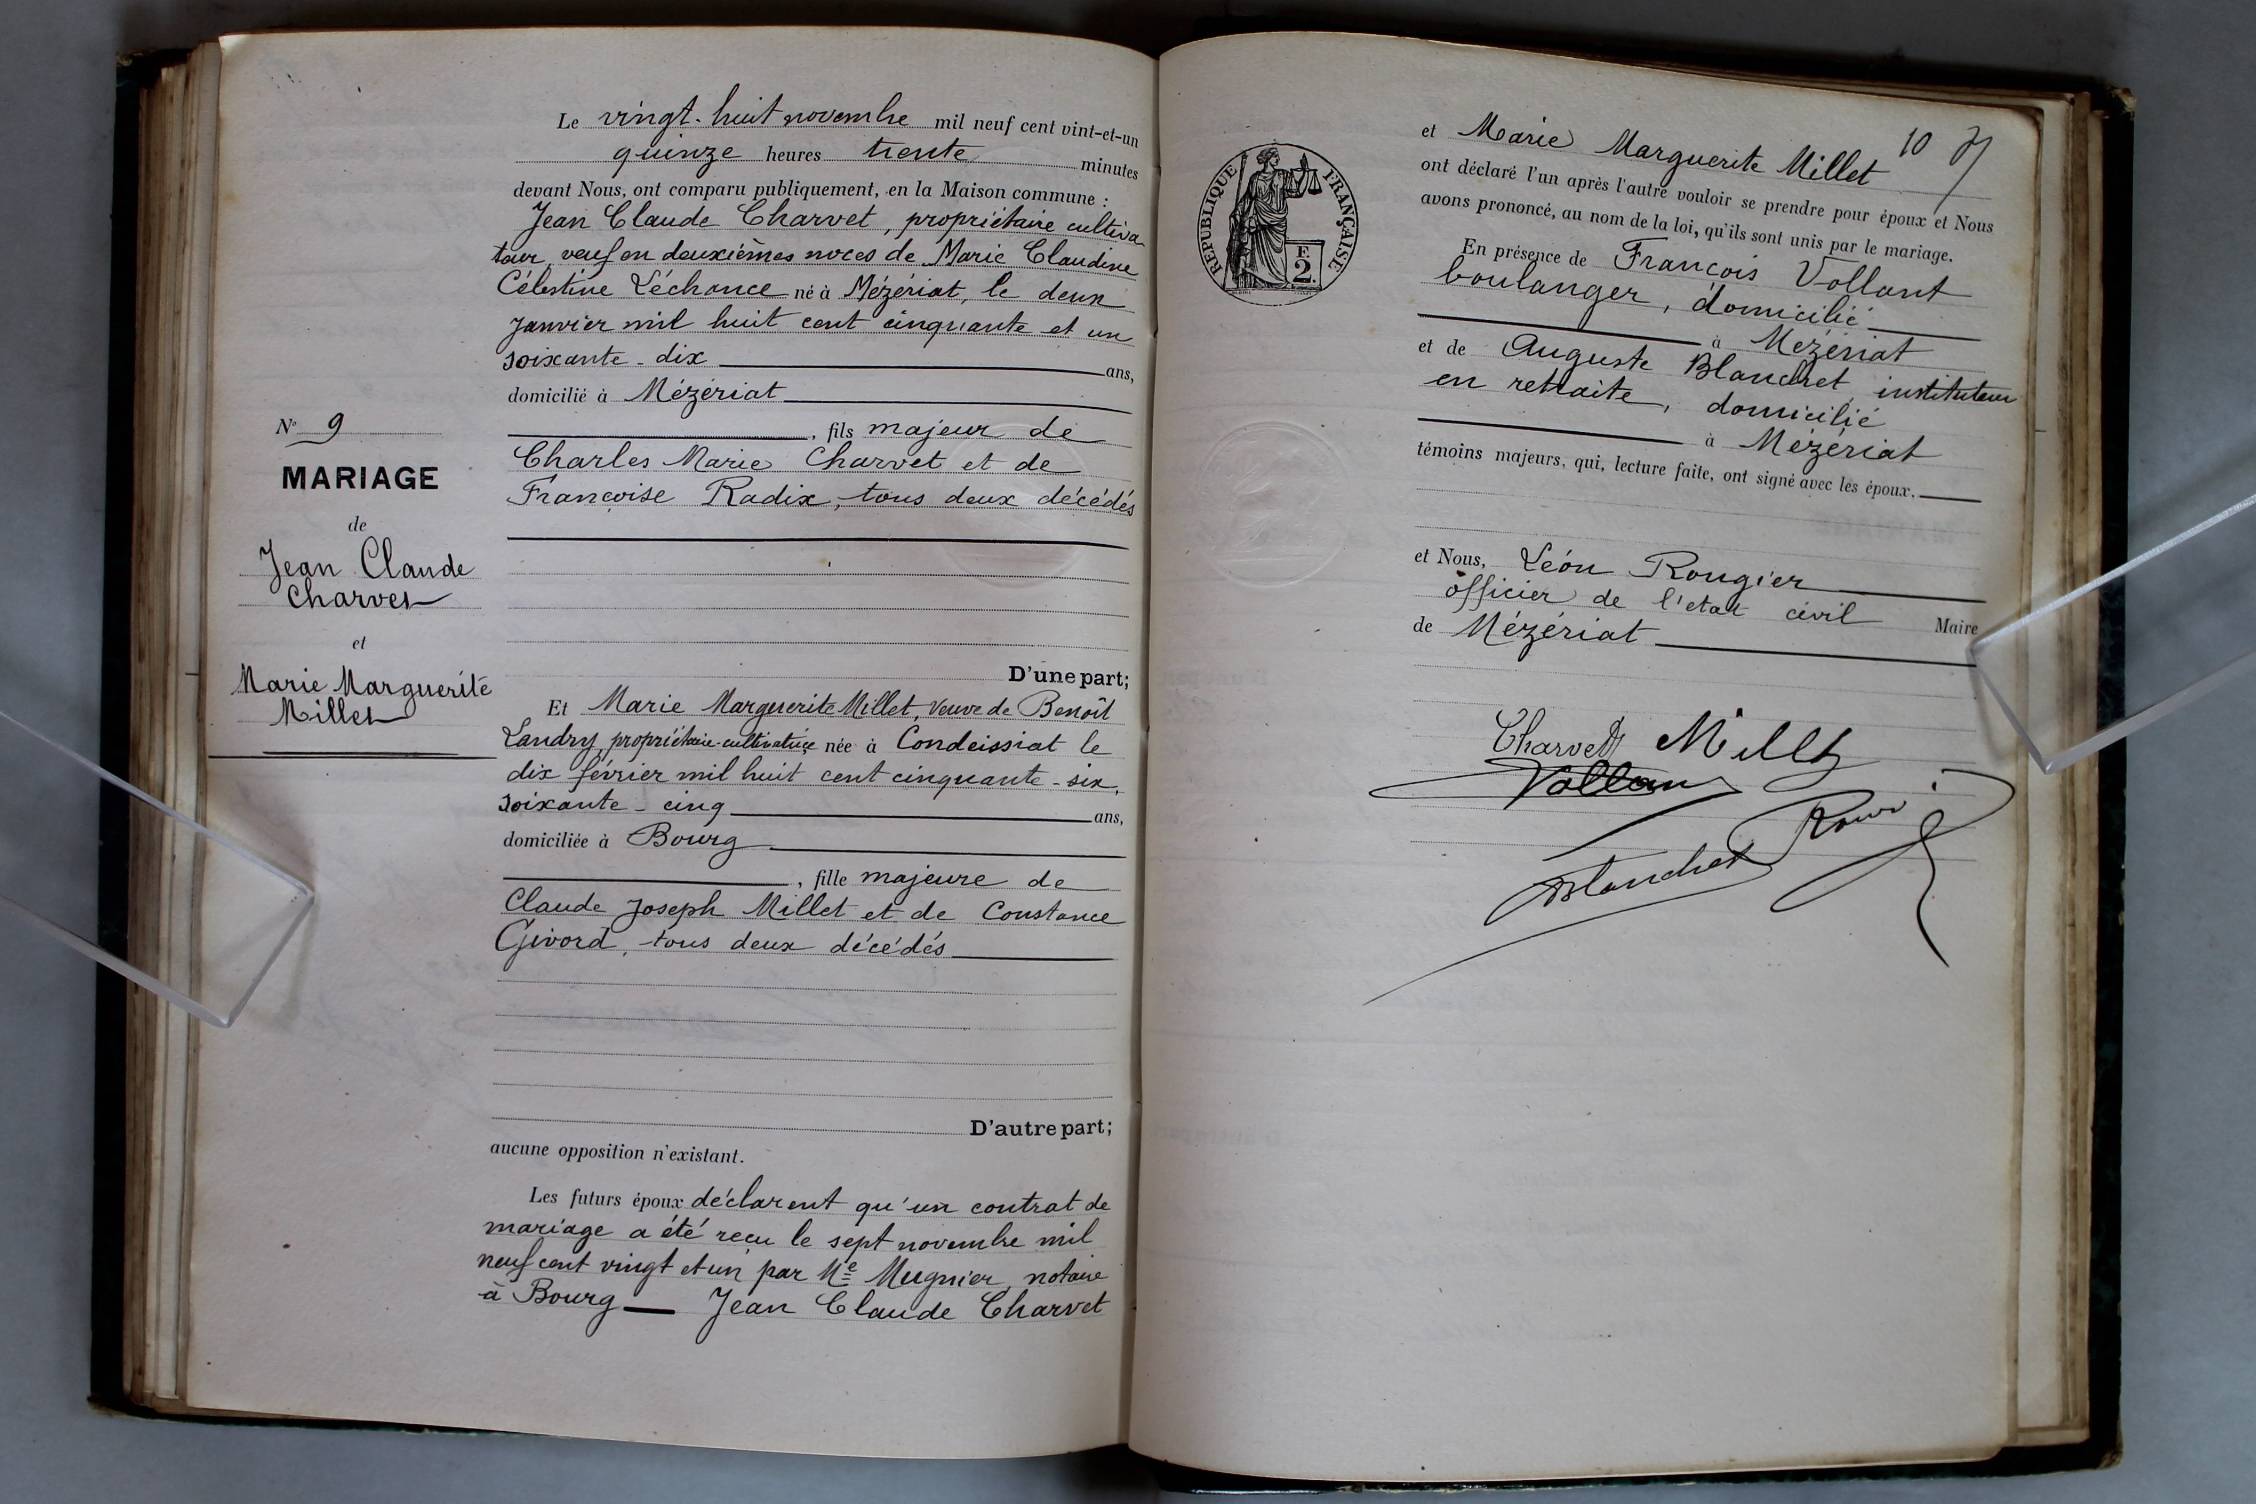 Le vingt-huit novembre mil neuf cent vint-et-un
quinze heures trente minutes
devant Nous, ont comparu publiquement, en la Maison commune :
Jean Claude Charvet, propriétaire cultiva
teur, veuf en deuxièmes noces de Marie Claudine
Célestine Léchance né à Mézériat, le deux
janvier mil huit cent cinquante et un
soixante-dix ans,
domicilié à Mézériat
, fils majeur de
Charles Marie Charvet et de
Françoise Radix, tous deux décédés
N° 9
MARIAGE
de
Jean Claude
Charvet
et
Marie Marguerite
Millet
D'une part;
Et Marie Marguerite Millet, veuve de Benoît
Landry, propriétaire-cultivatrice née à Condeissiat le
dix février mil huit cent cinquante-six,
soixante-cinq ans,
domiciliée à Bourg
, fille majeure de
Claude Joseph Millet et de Constance
Givord, tous deux décédés
D'autre part;
aucune opposition n'existant.
Les futurs époux déclarent qu'un contrat de
mariage a été reçu le sept novembre mil
neuf cent vingt et un par Me Mugnier, notaire
à Bourg — Jean Claude Charvet
RÉPUBLIQUE FRANÇAISE
F.
2.
10
et Marie Marguerite Millet
ont déclaré l'un après l'autre vouloir se prendre pour époux et Nous
avons prononcé, au nom de la loi, qu'ils sont unis par le mariage.
En présence de François Vollant
boulanger, domicilié
à Mézériat
et de Auguste Blanchet, instituteur
en retraite, domicilié
à Mézériat
témoins majeurs, qui, lecture faite, ont signé avec les époux.
et Nous, Léon Rougier
officier de l'etat civil Maire
de Mézériat
Charvet Millet
Vollant
Blanchet